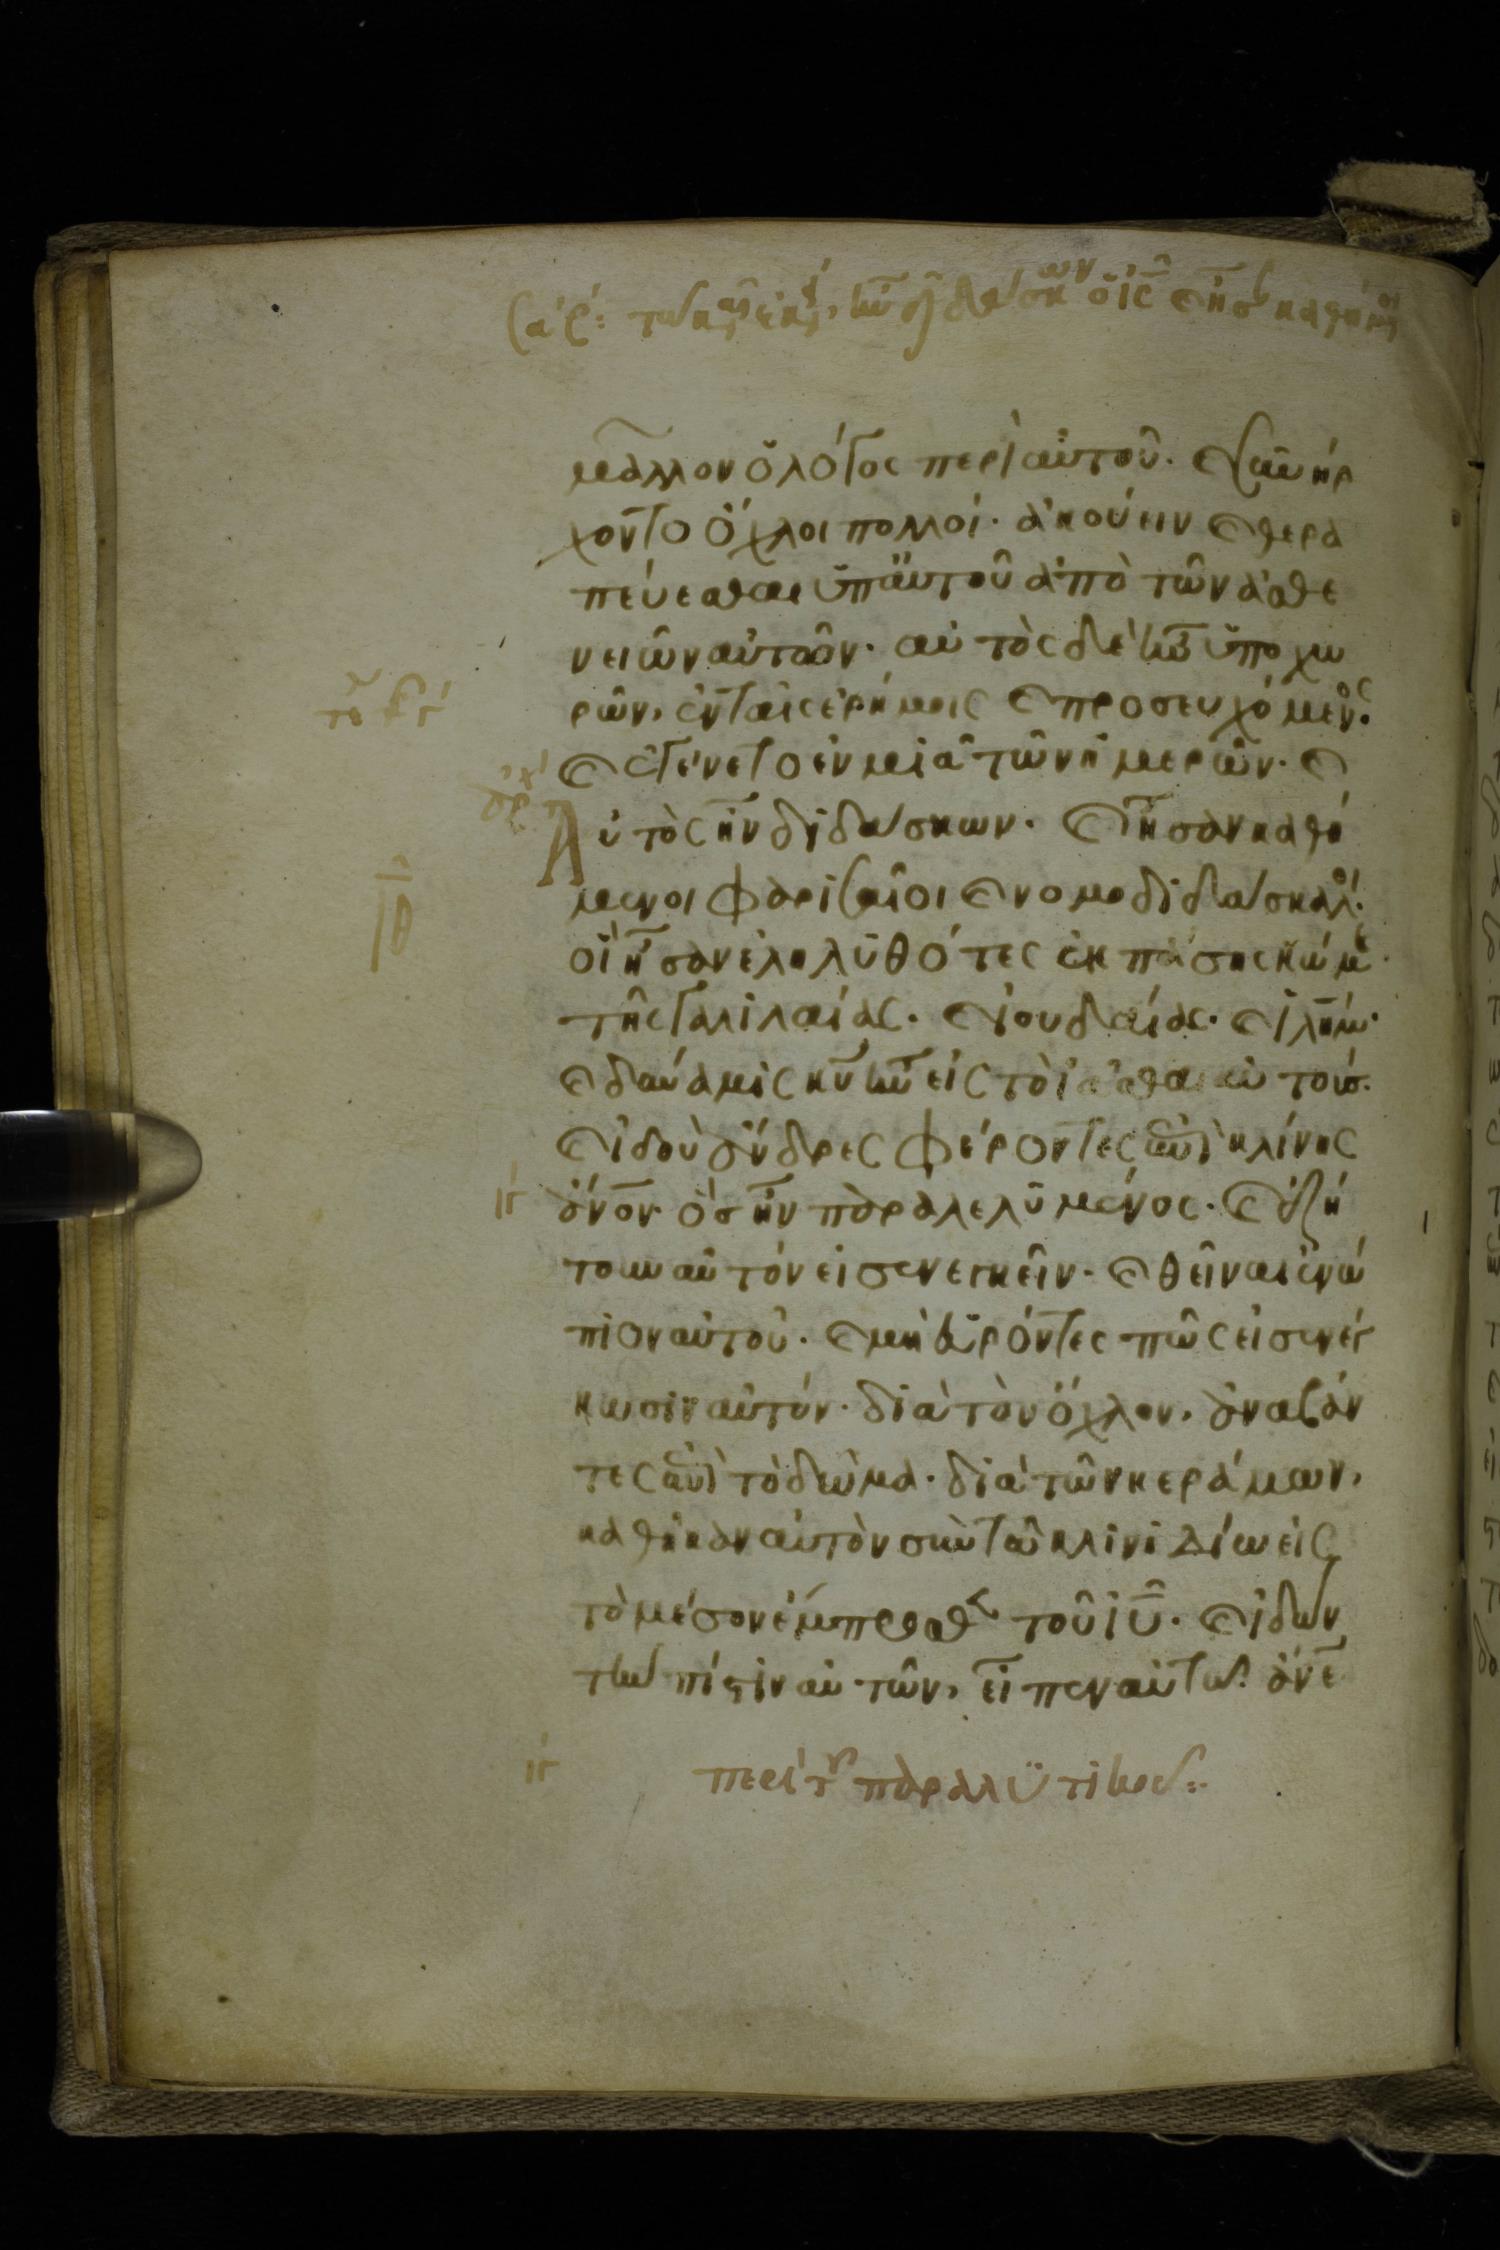 μᾶλλον ὁ λόγος περὶ αὐτοῦ. καὶ συνήρ
χοντο ὄχλοι πολλοί. ἀκούειν καὶ θερα
πεύεσθαι ὑπ αὐτοῦ ἀπὸ τῶν ἀσθε
νειῶν αὐτῶν. αὐτὸς δὲ ἦν ὑποχω
ρῶν, ἐν ταῖς ἐρήμοις καὶ προσευχόμενος.
καὶ ἐγένετο ἐν μιᾷ τῶν ἡμερῶν. καὶ
Αὐτὸς ἦν διδάσκων. καὶ ἦσαν καθή
μενοι φαρισαῖοι καὶ νομοδιδάσκαλοι.
οἳ ἦσαν ἐληλυθότες ἐκ πάσης κώμης
τῆς γαλιλαίας. καὶ ἰουδαίας. καὶ ἰλήμ.
καὶ δύναμις κυ ἦν εἰς τὸ ἰᾶσθαι αὐτούσ.
καὶ ἰδοὺ ἄνδρες φέροντες ἐπὶ κλίνης
ἄνον. ὃσ ἦν παραλελυμένος. καὶ ἐζή
τουν αὐτὸν εἰσενεγκεῖν. καὶ θεῖναι ἐνώ
πιον αὐτοῦ. καὶ μὴ εὑρόντες πῶς εἰσενέγ
κωσιν αὐτόν. διὰ τὸν ὄχλον, ἀναβάν
τες ἐπὶ τὸ δῶμα. διὰ τῶν κεράμων,
καθῆκαν αὐτὸν σὺν τῷ κλινιδίῳ εἰς
τὸ μέσον ἔμπροσθεν τοῦ ιυ. καὶ ἰδὼν
τὴν πίστιν αὐτῶν, εἶπεν αὐτῷ. ἄνε
ιγ περὶ τοῦ παραλυτικοῦ: